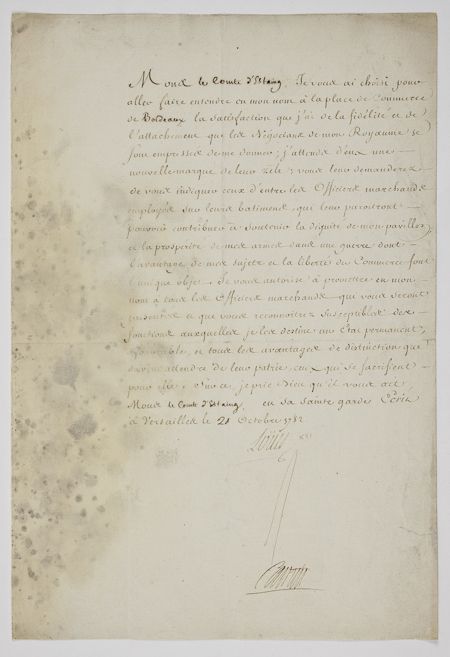 Mons. le Comte d'Estaing, Je vous ai choisi pour
aller faire entendre en mon nom à la place de Commerce
de Bordeaux la satisfaction que j'ai de la fidélité et de
l'attachement que les Négocians de mon Royaume se
sont empressés de me donner; j'attends d'eux une
nouvelle marque de leur zele; vous leur demanderez
de vous indiquer ceux d'entre les Officiers marchands
employés sur leurs batimens, qui leur paroitront
pouvoir contribuer à soutenir la dignité de mon pavillon
et la prospérité de mes armes dans une guerre dont
l'avantage de mes sujets et la liberté du Commerce font
l'unique objet. Je vous autorise à promettre en mon
nom à tous les Officiers marchands qui vous seront
présentés et que vous reconnoitrez susceptibles des
fonctions auxquelles je les destine un Etat permanent,
honorable, et tous les avantages de distinction que
attendre de leur patrie, ceux qui se sacrifient
pour elle. Sur ce, je prie Dieu qu'il vous ait,
Mons. le Comte d'Estaing, en sa sainte garde Ecrit
à Versailles le 21 Octobre 1782
Louis
Castries